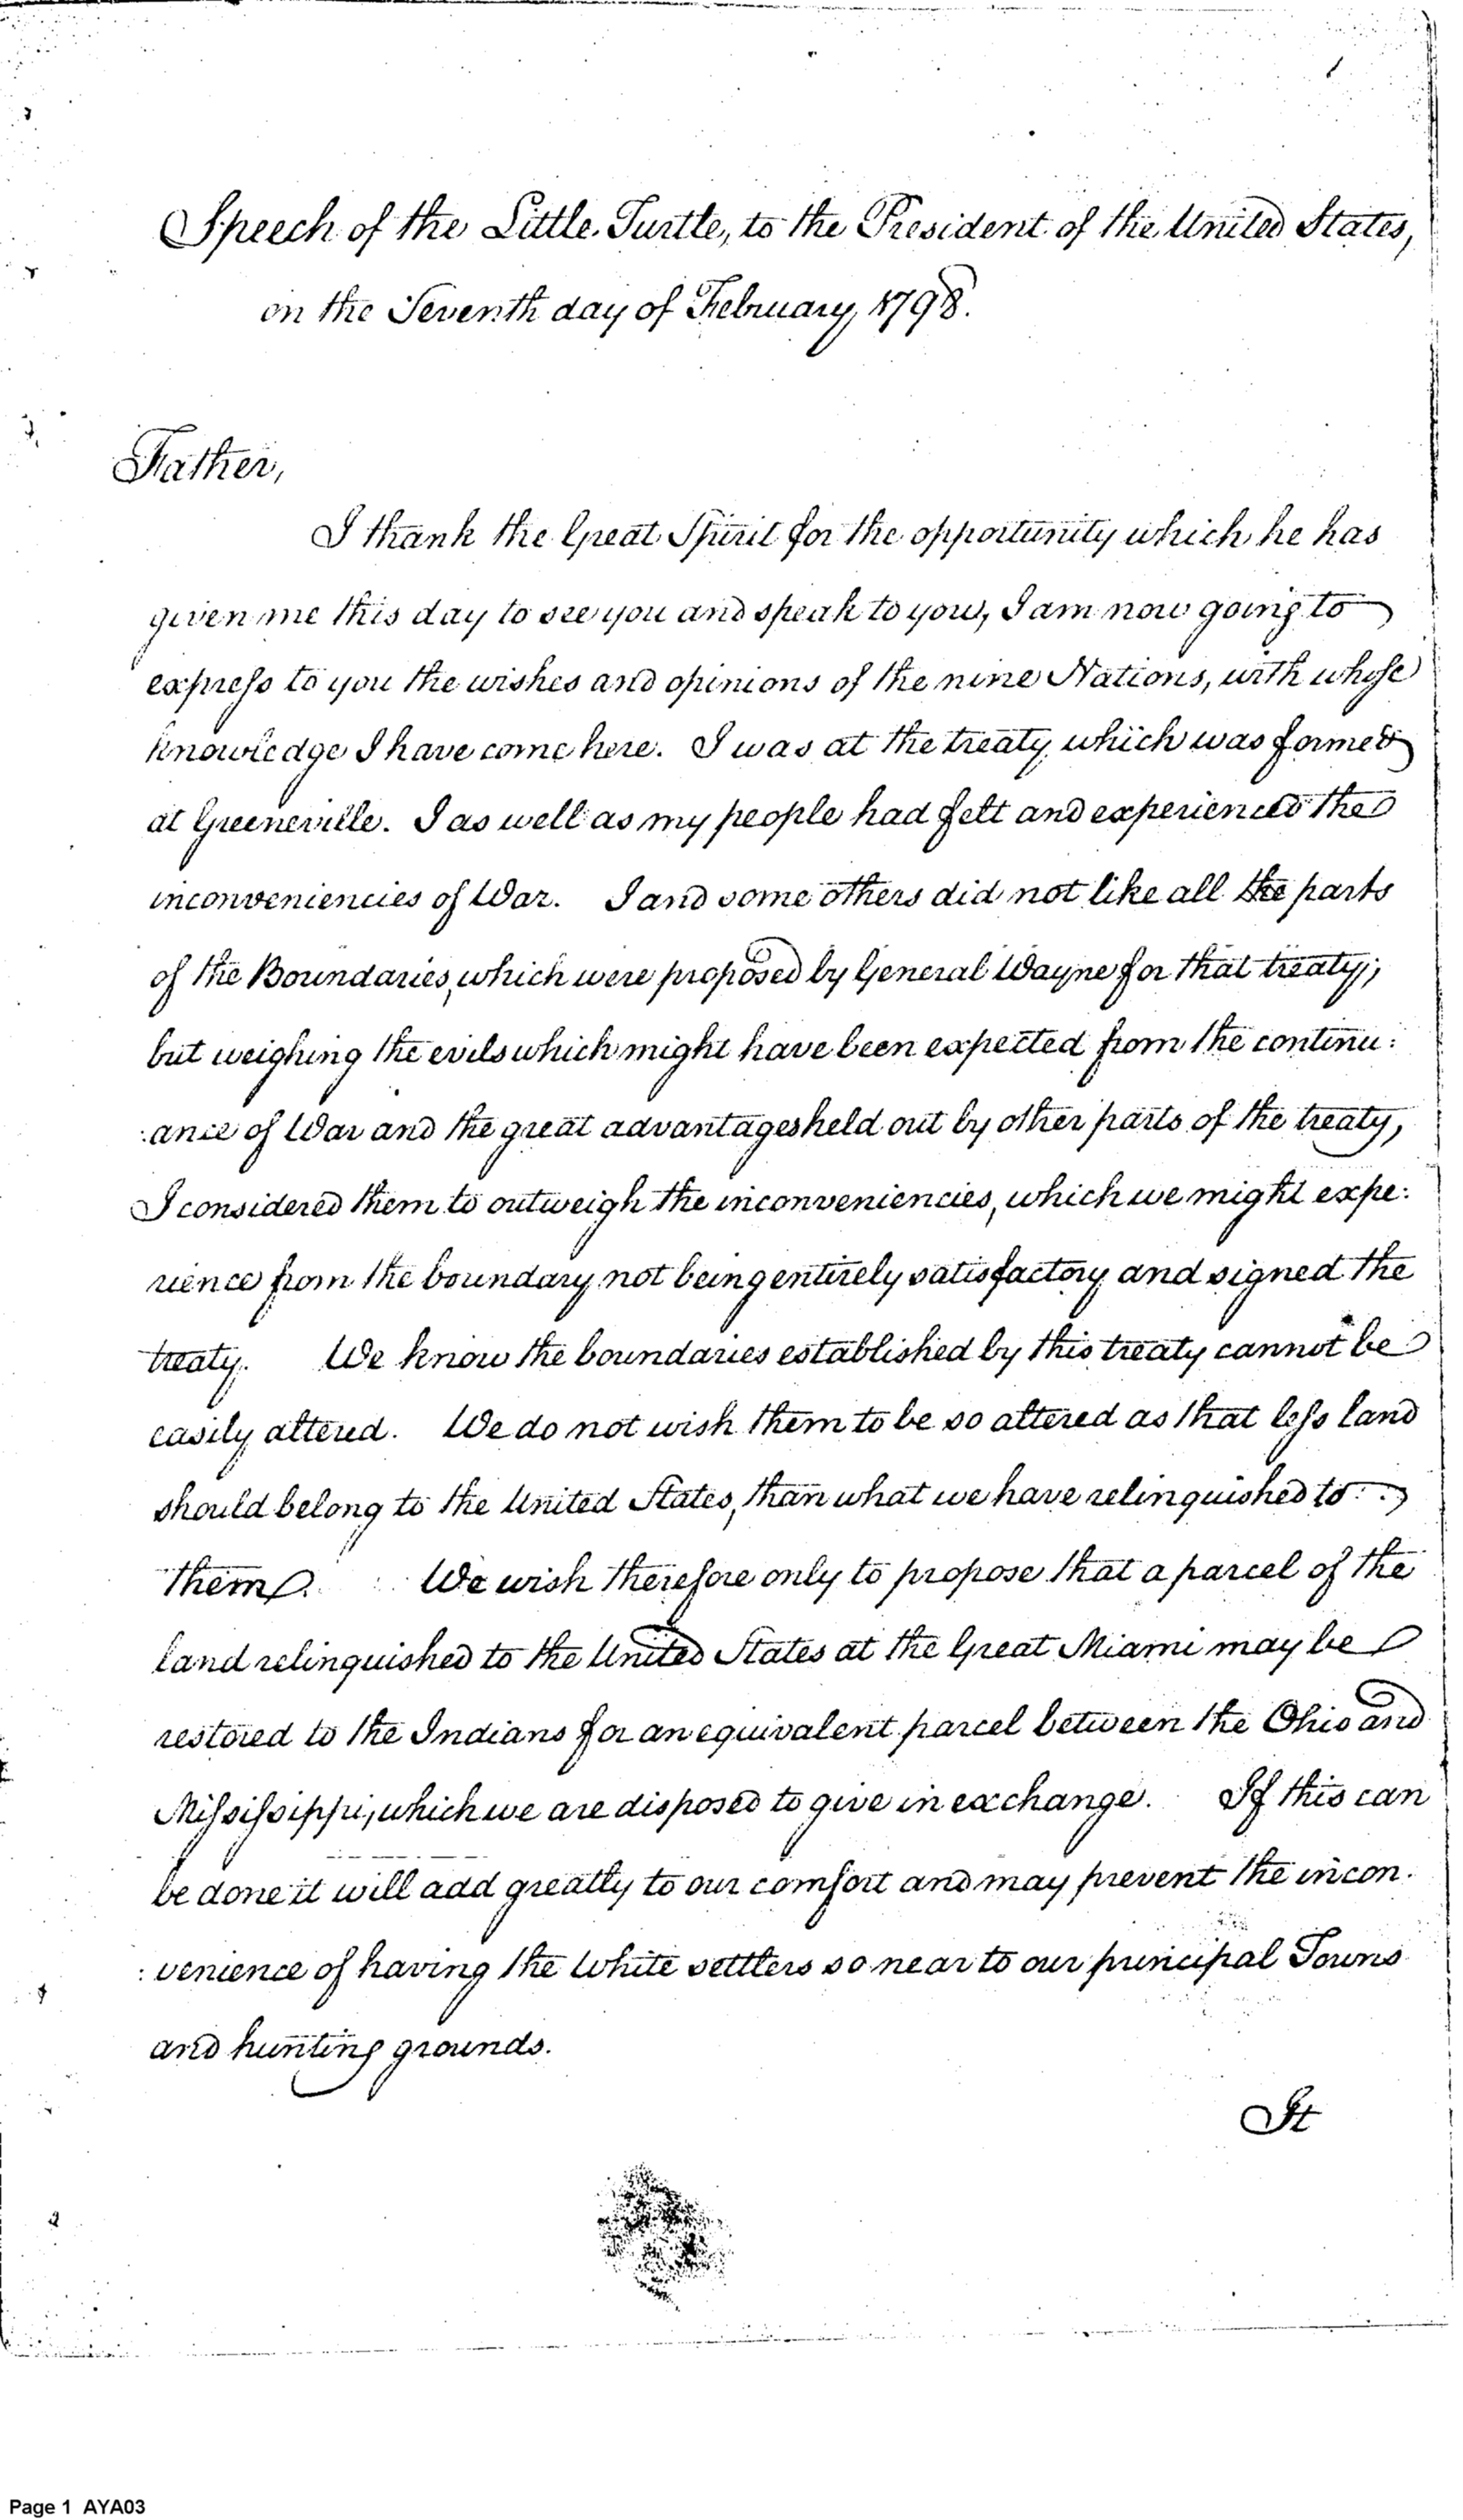 Speech of the Little Turtle, to the President of the United States,
on the Seventh day of February, 1798.
Father,
I thank the Great Spirit for the opportunity which he has
given me this day to see you and speak to you, I am now going to
express to you the wishes and opinions of the nine Nations, with whose
knowledge I have come here. I was at the treaty, which was formed
at Greeneville. I as well as my people had felt and experienced the
inconveniencies of War. I and some others did not like all the parts
of the Boundaries, which were proposed by General Wayne for that treaty;
but weighing the evils which might have been expected from the continu:
:ance of War and the great advantages held out by other parts of the treaty,
I considered them to outweigh the inconveniencies, which we might expe:
rience from the boundary not being entirely satisfactory and signed the
treaty. We know the boundaries established by this treaty cannot be
easily altered. We do not wish them to be so altered as that less land
should belong to the United States, than what we have relinquished to
them. We wish therefore only to propose that a parcel of the
land relinquished to the United States at the Great Miami may be
restored to the Indians for an equivalent parcel between the Ohio and
Mississippi, which we are disposed to give in exchange. If this can
be done it will add greatly to our comfort and may prevent the incon:
:venience of having the White settlers so near to our principal Towns
and hunting grounds.
It
Page 1 AYA03